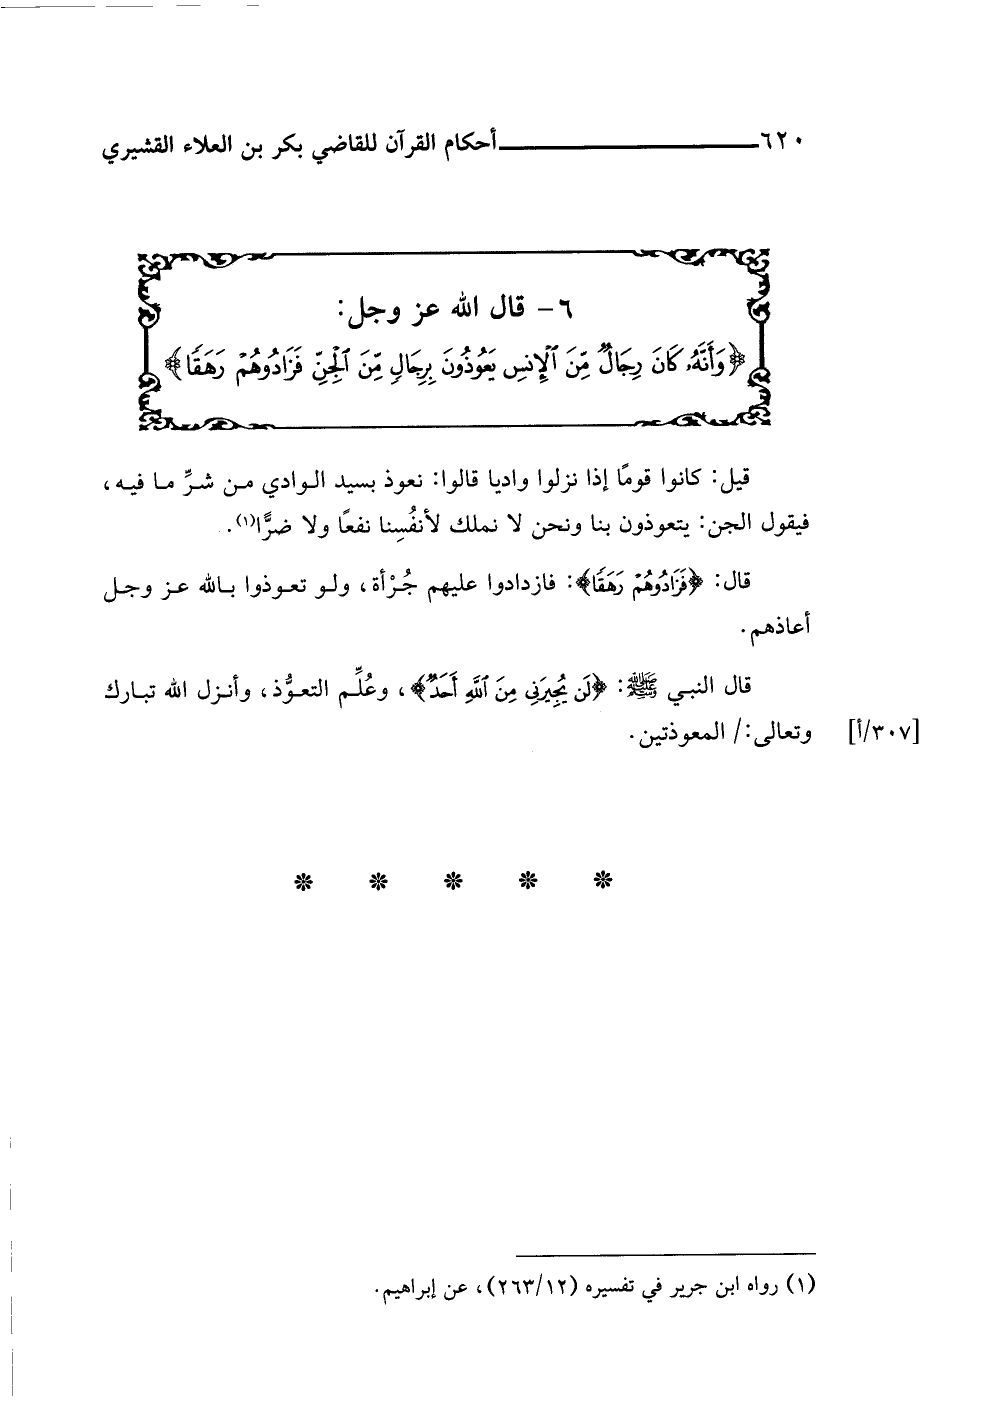 ٦٢٠ أحكام القرآن للقاضي بكر بن العلاء القشيري
٦ - قال الله عز وجل:
﴿وَأَنَّهُۥ كَانَ رِجَالٌ مِّنَ ٱلْإِنسِ يَعُوذُونَ بِرِجَالٍ مِّنَ ٱلْجِنِّ فَزَادُوهُمْ رَهَقًا﴾
قيل: كانوا قومًا إذا نزلوا واديا قالوا: نعوذ بسيد الوادي من شرِّ ما فيه،
فيقول الجن: يتعوذون بنا ونحن لا نملك لأنفُسِنا نفعًا ولا ضرًّا(١).
قال: ﴿فَزَادُوهُمْ رَهَقًا﴾: فازدادوا عليهم جُرْأة، ولو تعوذوا بالله عز وجل
أعاذهم.
قال النبي ﷺ: ﴿لَن يُجِيرَنِى مِنَ ٱللَّهِ أَحَدٌ﴾، وعُلِّم التعوُّذ، وأنزل الله تبارك
[٣٠٧/أ] وتعالى:/ المعوذتين.
(١) رواه ابن جرير في تفسيره (٢٦٣/١٢)، عن إبراهيم.